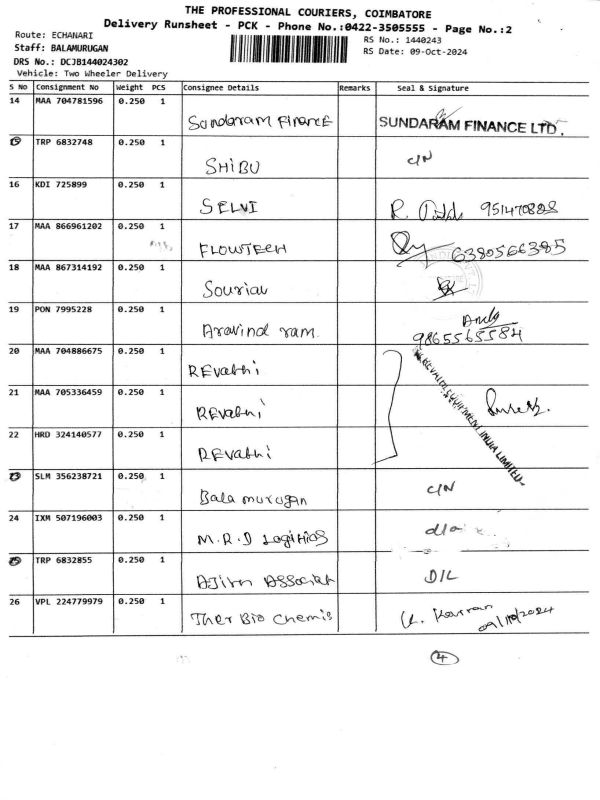 THE PROFESSIONAL COURIERS, COIMBATORE
Delivery Runsheet - PCK - Phone No.:0422-3505555 - Page No.:2
Route: ECHANARI
RS No.: 1440243
Staff: BALAMURUGAN
RS Date: 09-Oct-2024
DRS No.: DCJB144024302
Vehicle: Two Wheeler Delivery
S No Consignment No Weight PCS Consignee Details Remarks Seal & Signature
14 MAA 704781596 0.250 1 Sundaram Finance SUNDARAM FINANCE LTD.
TRP 6832748 0.250 1 SHIBU C/N
16 KDI 725899 0.250 1 SELVI R.
17 MAA 866961202 0.250 1 FLOWTECH 6380566385
18 MAA 867314192 0.250 1 Souriau
19 PON 7995228 0.250 1 Aravind ram 9865565584
20 MAA 704886675 0.250 1 REvathi
21 MAA 705336459 0.250 1 REvathi EQUIPMENT INDIA LIMITED
22 HRD 324140577 0.250 1 REvathi
SLM 356238721 0.250 1 Bala murugan C/N
24 IXM 507196003 0.250 1 M.R.D
TRP 6832855 0.250 1 D/L
26 VPL 224779979 0.250 1 Ther Bio Chemis 09/10/2024
4